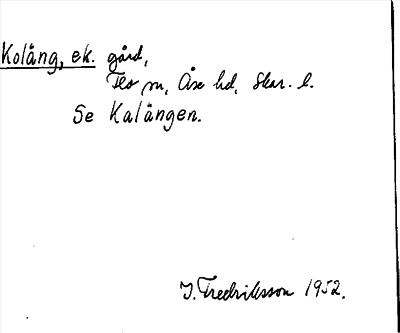 Kolång, ek. gård,
Flo sn, Åse hd, Skar. l.
Se Kalängen.
I. Fredriksson 1952.